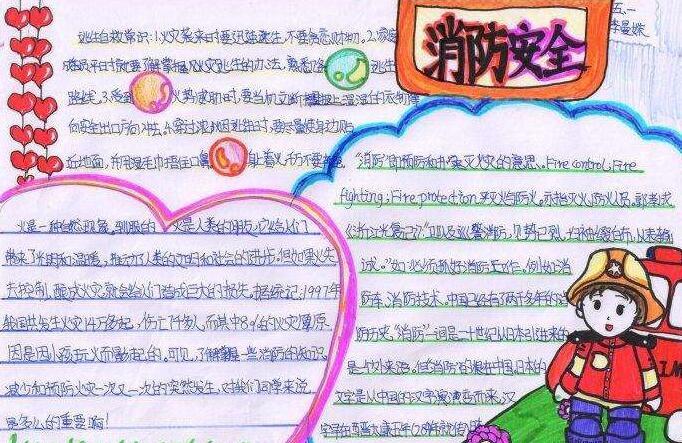 消防安全
五、一
李曼姝
逃生自救常识:1.火灾袭来时要迅速逃生,不要贪恋财物。2.家庭
成员平时就要了解掌握火灾逃生的办法,熟悉 逃生
路线。3.受到 火势威胁时,要当机立断披上浸湿的衣物
向安全出口方向冲去。4.穿过浓烟逃生时,要尽量使身边贴
近地面,并用湿毛巾捂住口鼻 身上着火,千万不要
火是一种自然现象,驯服的火是人类的朋友,它给人们
带来了光明和温暖,推动了人类的文明和社会的进步。但如果火失
去控制,酿成火灾就会给人们造成巨大的损失。据统计:1997年
我国共发生火灾14万多起,伤亡 千多人,而其中8%的火灾原
因是因小孩玩火而引起的。可见,了解掌握一些消防的知识,
减少和预防火灾一次又一次的突然发生,对我们同学来说
是多么的重要啊!
"消防"即预防和扑灭火灾的意思。Fire control; Fire
fighting; Fire protection. 灭火与防火。亦指灭火防火人员。
记》
试。"如:必须抓好消防工作,例如消
防车、消防技术。中国已经有了两千多年的消
防历史。"消防"一词是二十世纪从日本引进来的
是个外来语。但消防的根在中国,日本的
文字是从中国的汉字演变而来,汉
字在西晋太康五年(284年)就